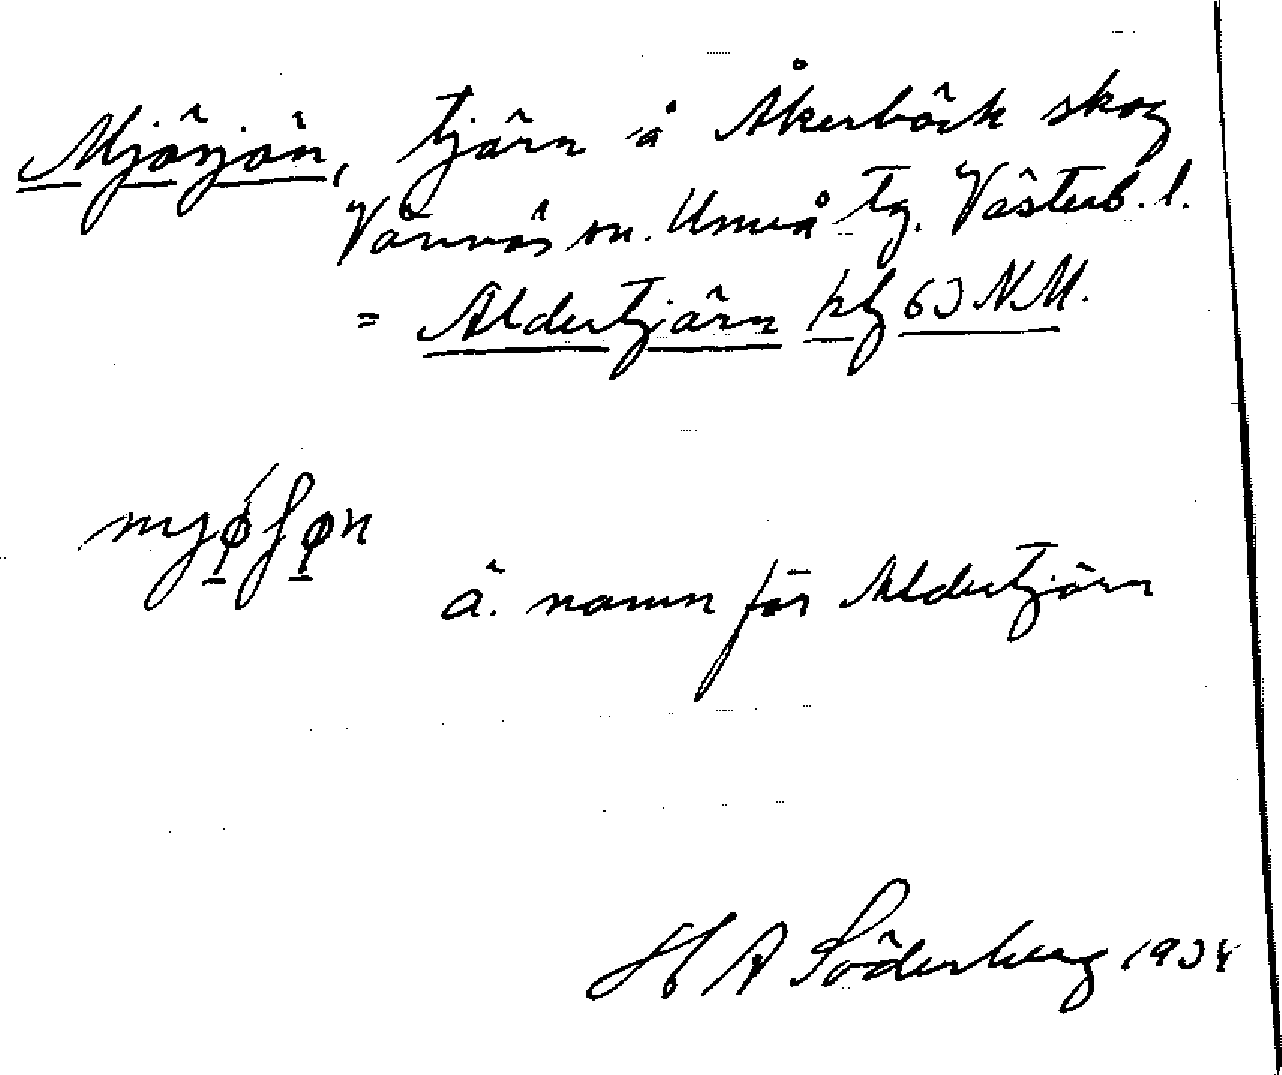 Mjösjön, tjärn å Åkerbäck skog
Vännäs sn. Umeå tg. Västerb. l.
= Aldertjärn kbl 63 N.M.
Ä. namn för Aldertjärn
H A Söderberg 1934